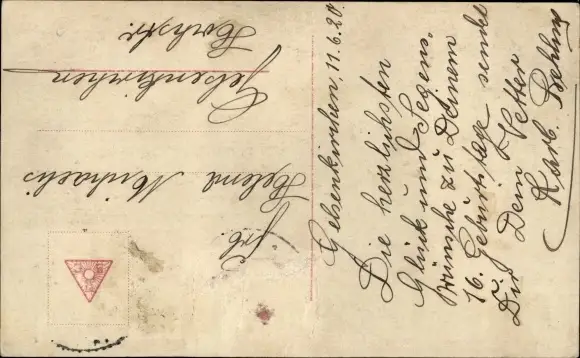 Gelsenkirchen, 11.6.20.
Die herzlichsten
Glück und Segens-
wünsche zu Deinem
16. Geburtstage sendet
Dir Dein Vetter
Karl
Frl.
Helene Michaelis
Gelsenkirchen
Hochstr.